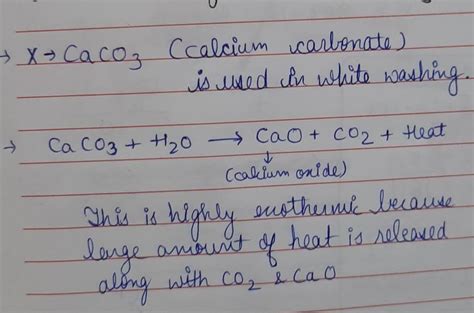 → X → CaCO3 (Calcium carbonate)
is used in white washing.
→ CaCO3 + H2O → CaO + CO2 + Heat
↓
(calcium oxide)
This is highly exothermic because
large amount of heat is released
along with CO2 & CaO